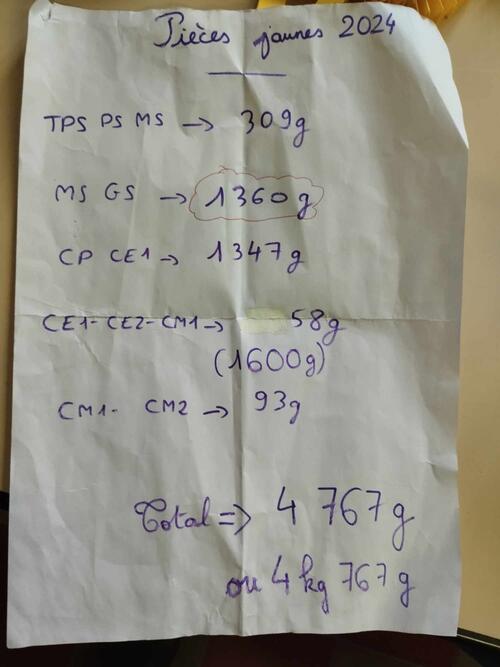 Pièces jaunes 2024
TPS PS MS → 309g
MS GS → 1360g
CP CE1 → 1347g
CE1-CE2-CM1 → 58g
(1600g)
CM1- CM2 → 93g
Total => 4 767g
ou 4 kg 767g